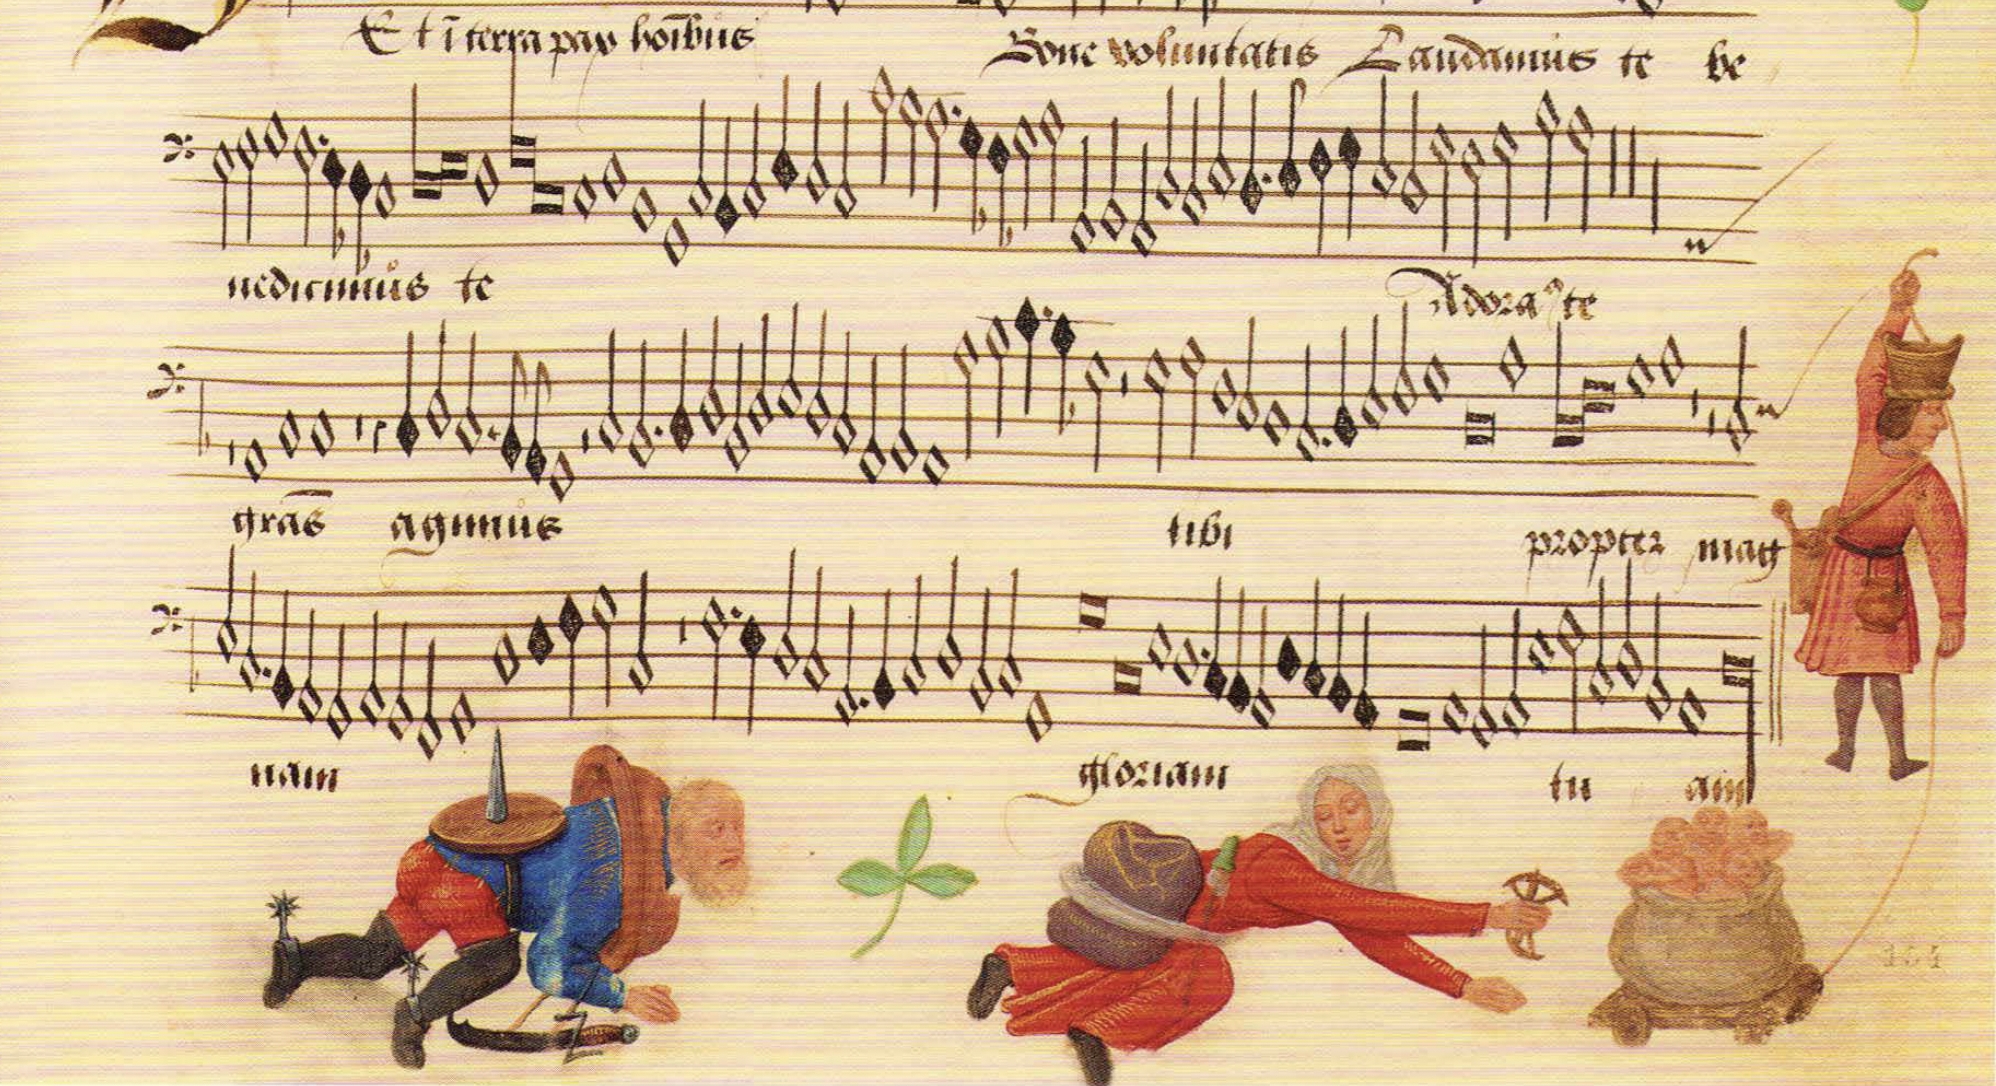 Et ī terra pax hoībus Bone voluntatis Laudamus te be
nedicimus te Adoraꝰ te
gras̄ agimus tibi propter mag
nam gloriam tu am